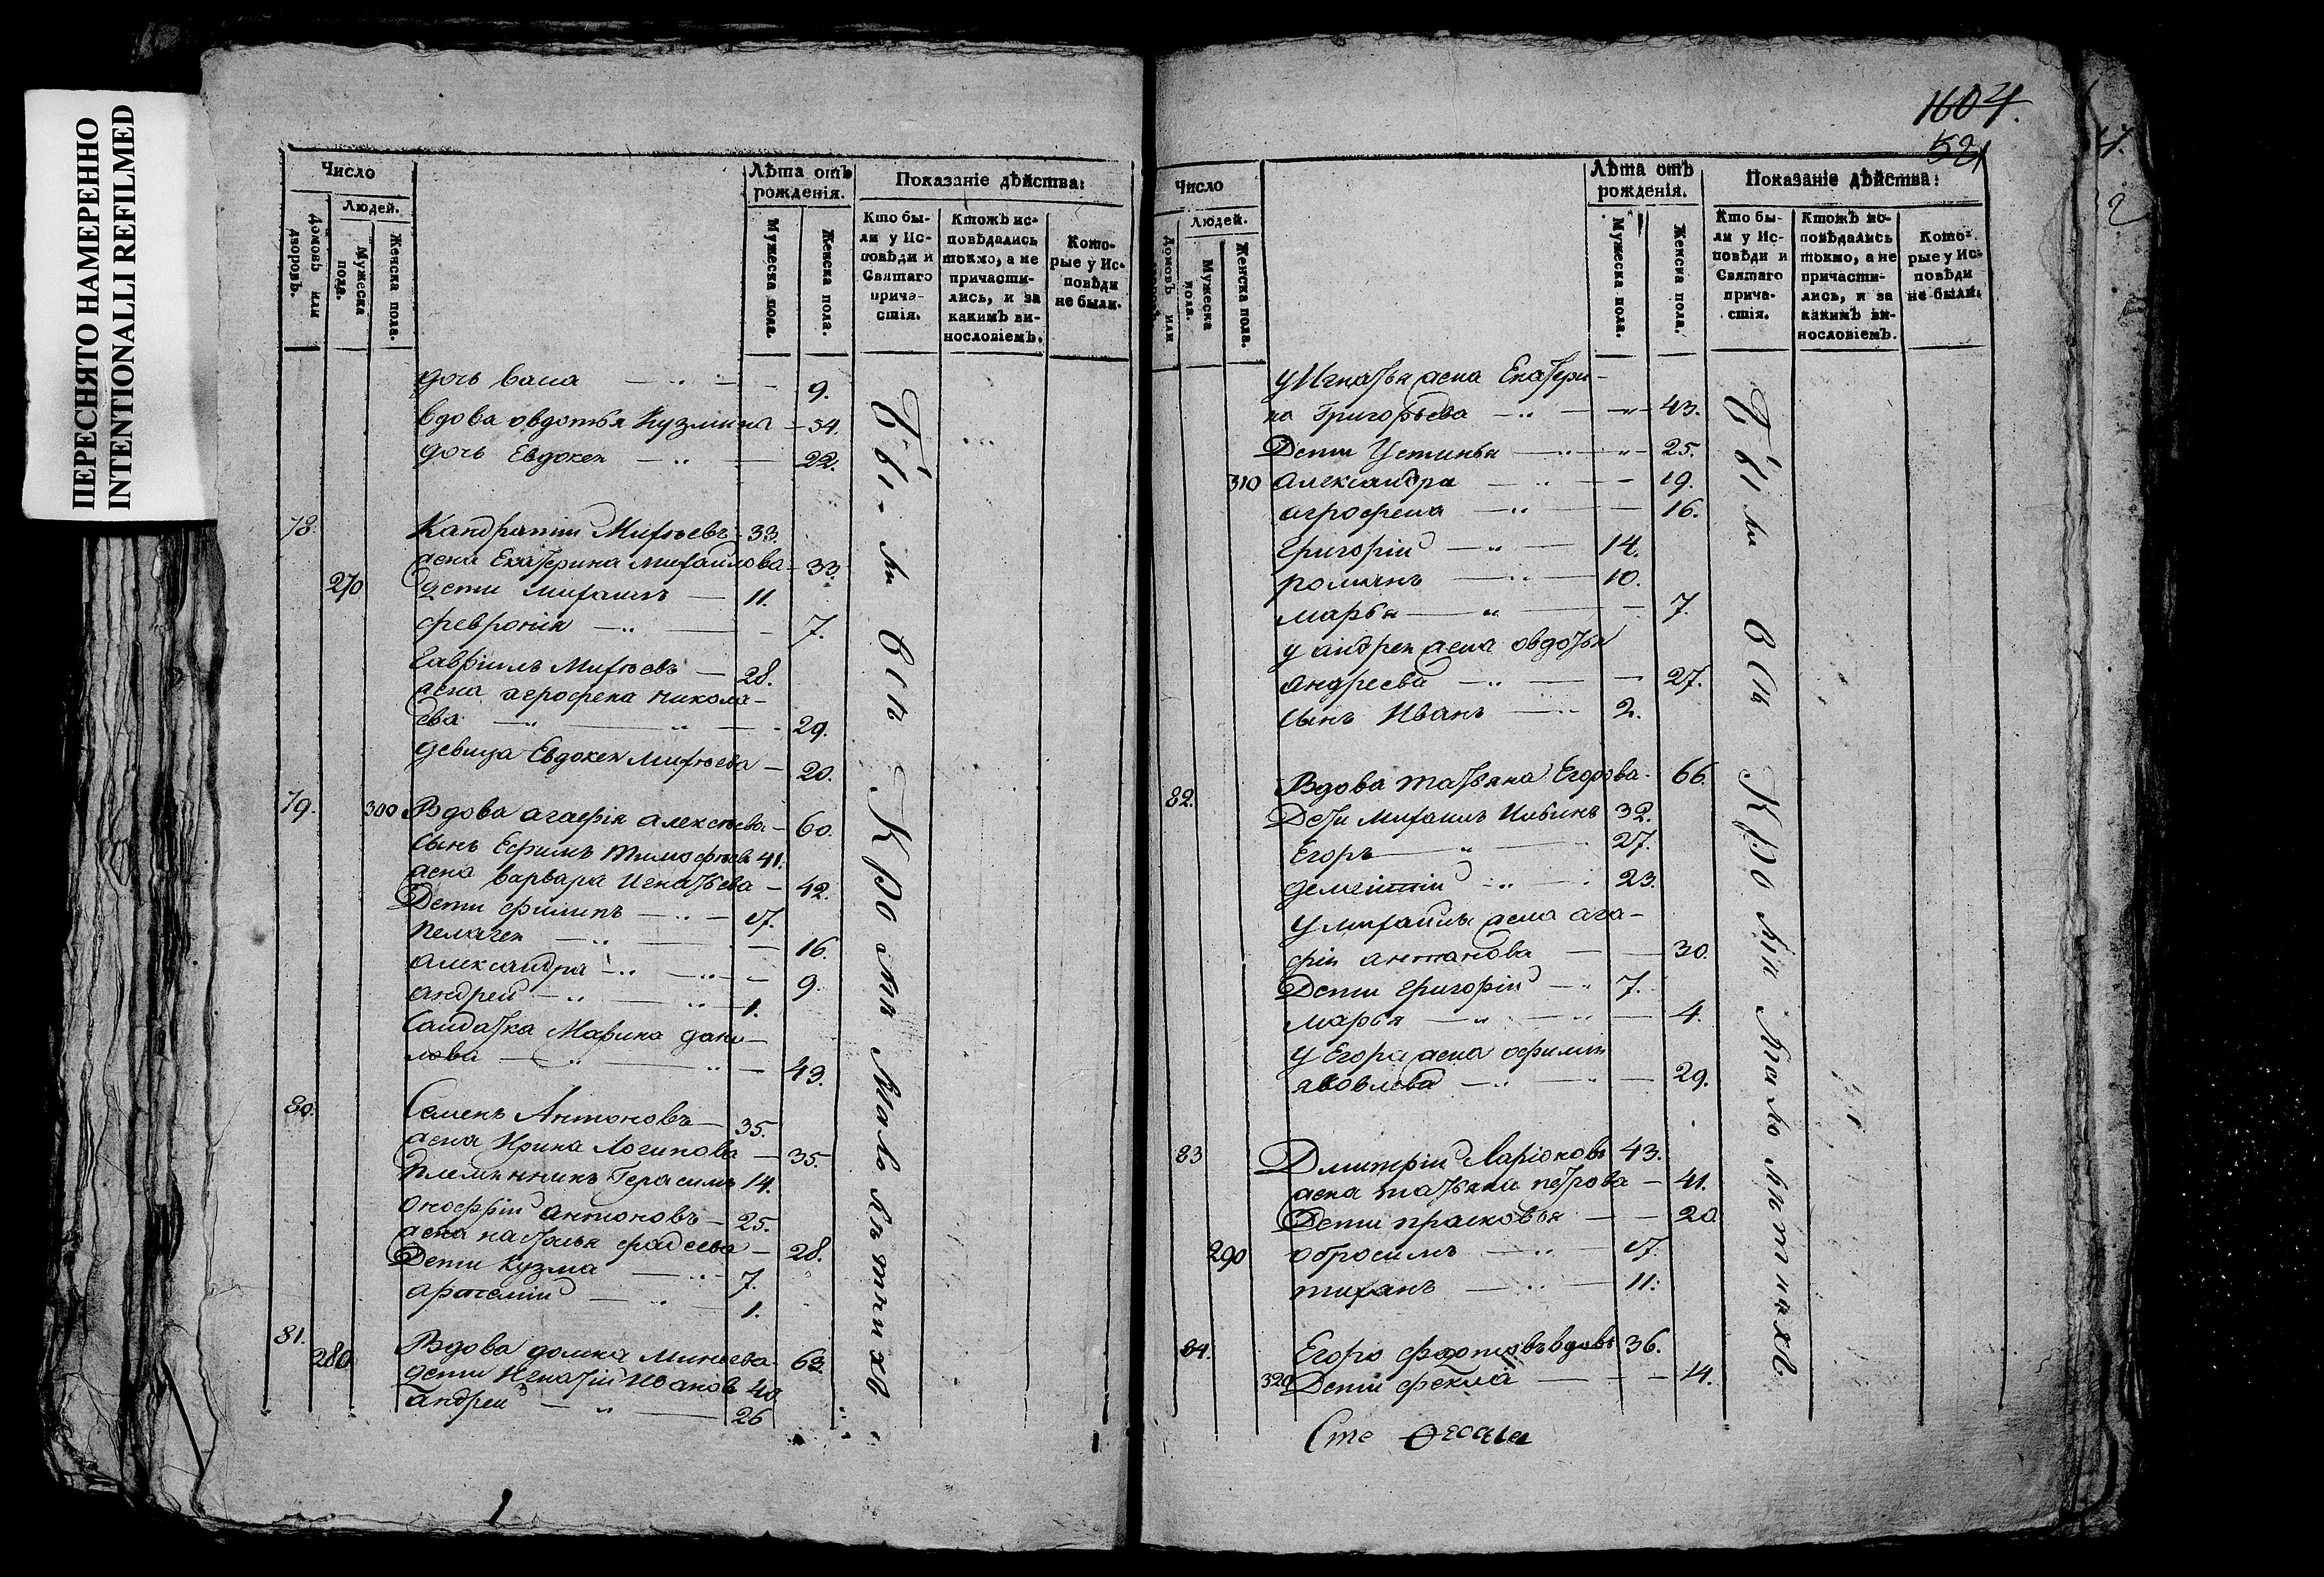 ПЕРЕСНЯТО НАМЕРЕННО
INTENTIONALLI REFILMED
Число
Людей.
Домовъ или дворовъ.
Мужеска пола.
Женска пола.
Лѣта отъ рожденія.
Мужеска пола.
Женска пола.
Показаніе дѣйства:
Кто бы-
ли у Ис-
повѣди и
Святаго
прича-
стія.
Ктожъ ис-
повѣдались
токмо, а не
причасти-
лись, и за
какимъ ви-
нословіемъ.
Кото-
рые у Ис-
повѣди
не были.
дочь васа 9.
вдова овдотья Кузмина 54.
дочь Евдокея 22.
78. Кандратий Михѣевъ 33.
жена Екатерина михаилова 33.
270 дети михаилъ 11.
феврония 7.
Гаврiилъ Михѣевъ 28.
жена агрофена никола-
ева 29.
девица Евдокея михѣева 20.
79. 300 Вдова агафiя алексѣева 60.
сынъ Ефимъ тимофѣевъ 41.
жена варвара Игнатьева 42.
Дети филипъ 17.
пелагея 16.
александра 9.
андрей 1.
Салдатка Марина дани-
лова 43.
80. Семенъ Антоновъ 35.
жена Ирина Логинова 35.
племянникъ Герасимъ 14.
онофрiй антоновъ 25.
жена наталья фадеева 28.
Дети Кузма 7.
артемiй 1.
81. Вдова домна Минѣева 63.
280 дети Игнатiй Ивановъ 40.
андрей 26
Были всѣ Кромѣ Малолѣтнихъ
1604.
52
Число
Людей.
Домовъ или
Мужеска пола.
Женска пола.
Лѣта отъ рожденія.
Мужеска пола.
Женска пола.
Показаніе дѣйства:
Кто бы-
ли у Ис-
повѣди и
Святаго
прича-
стія.
Ктожъ ис-
повѣдались
токмо, а не
причасти-
лись, и за
какимъ ви-
нословіемъ.
Кото-
рые у Ис-
повѣди
не были.
у Игнатья жена Екатери-
на Григорьева 43.
Дети Устинья 25.
310 александра 19.
агрофена 16.
григорiй 14.
романъ 10.
марья 7.
у андрея жена овдотья
андреева 27.
сынъ Иванъ 2.
82. Вдова татьяна Егорова 66.
Дети михаилъ Ильинъ 32.
Егоръ 27.
дементiй 23.
у михаилы жена ага-
фiя антанова 30.
Дети григорiй 7.
марья 4.
у Егора жена офимия
яковлева 29.
83 Дмитрiй Ларiоновъ 43.
жена татьяна петрова 41.
Дети прасковья 20
290 обросимъ 17.
тиханъ 11.
84. Егоръ федотовъ вдовъ 36.
320 Дети фекла 14.
Были всѣ Кромѣ Малолѣтнихъ